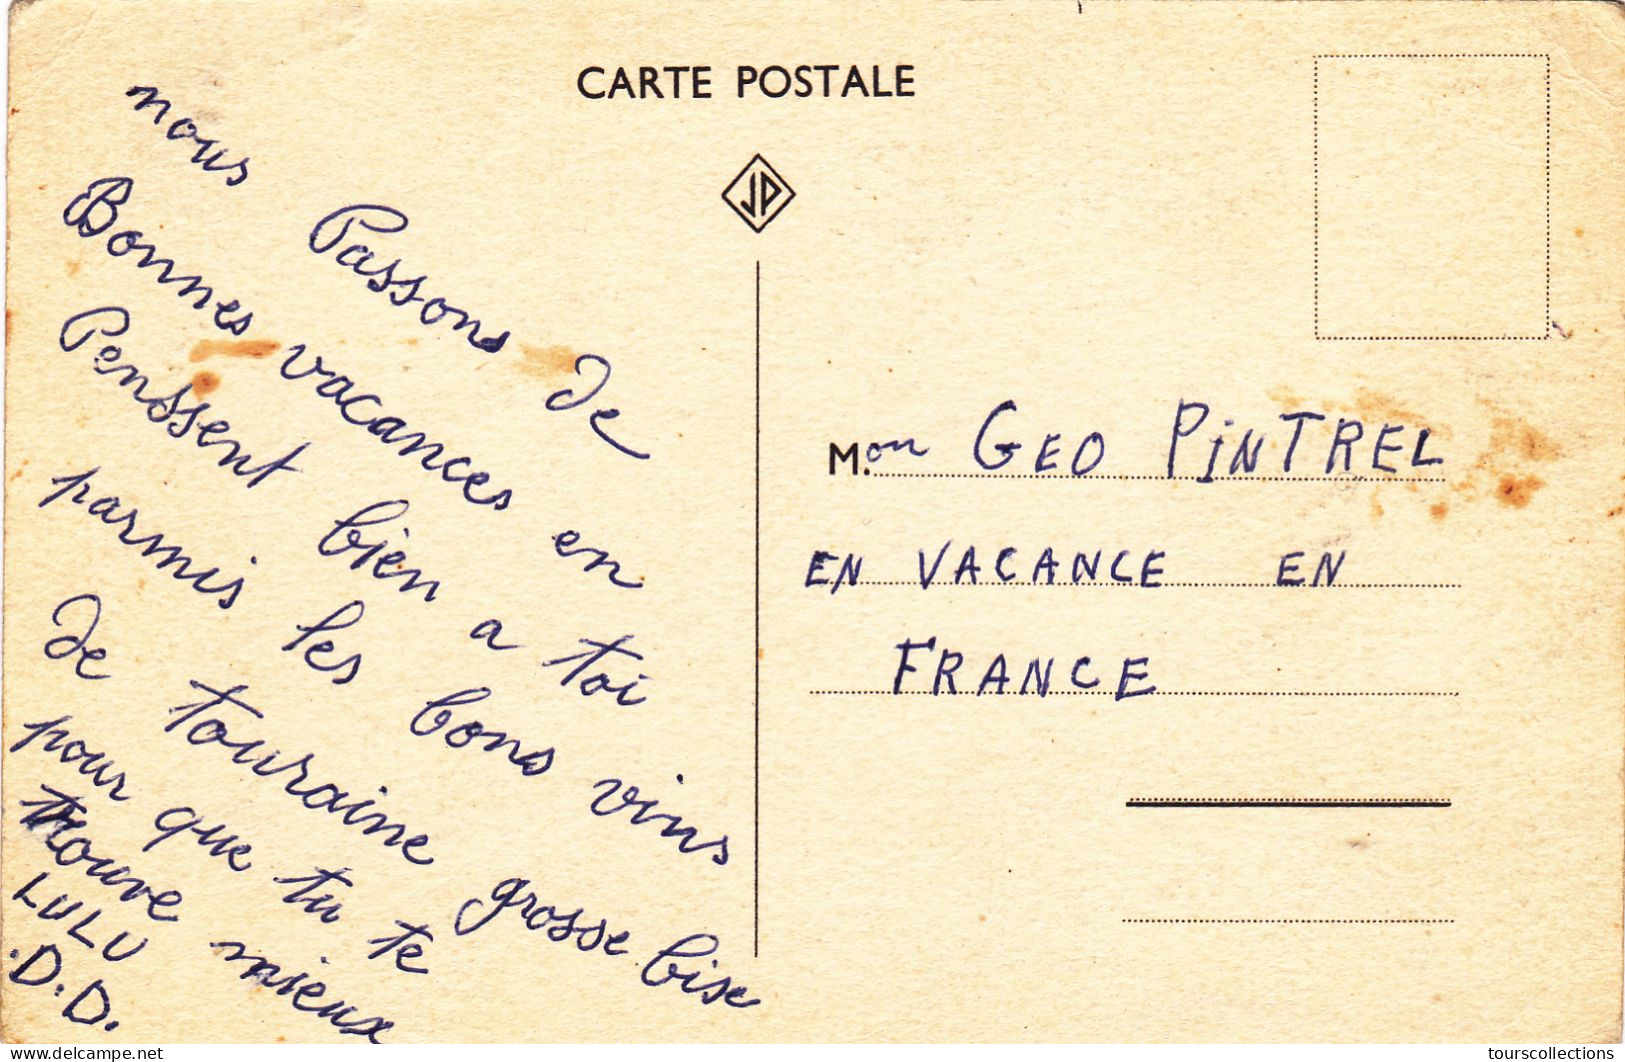 CARTE POSTALE
JP
nous Passons de
Bonnes vacances en
Penssent bien a toi
parmis les bons vins
de touraine grosse bise
pour que tu te
trouve mieux
LULU
.D.D.
M.on GEO PiNTREL
EN VACANCE EN
FRANCE
delcampe.net
tourscollections